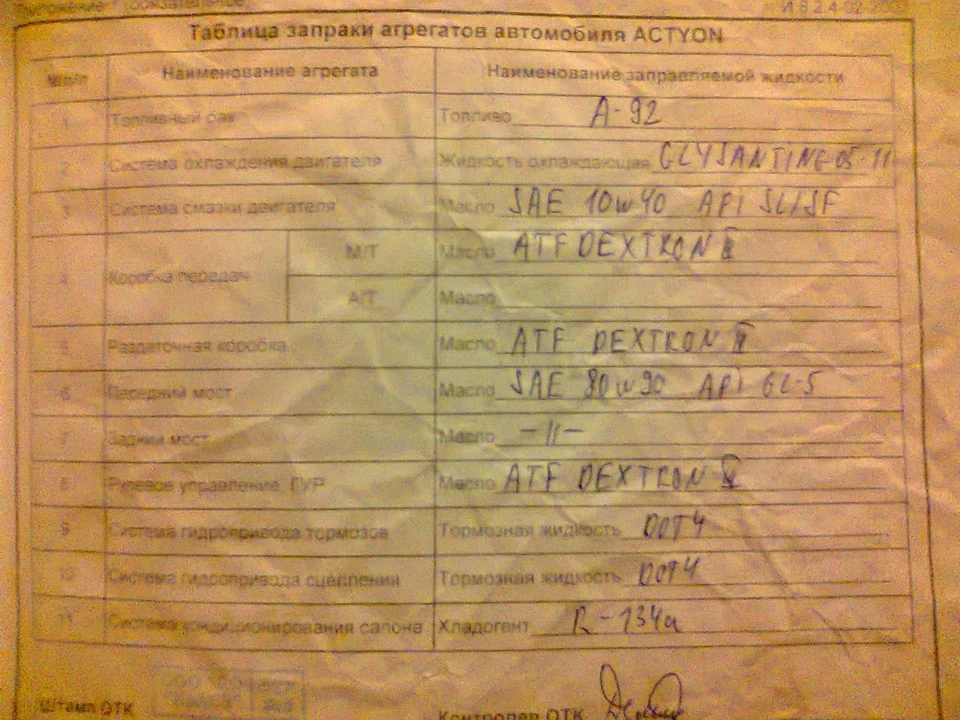 (обязательное)
И 8.2.4-02-200
Таблица запраки агрегатов автомобиля ACTYON
№п/п Наименование агрегата Наименование заправляемой жидкости
1 Топливный бак Топливо А-92
2 Система охлаждения двигателя Жидкость охлаждающая GLYSANTING 05-11
3 Система смазки двигателя Масло SAE 10w40 API SL/SF
4 Коробка передач М/Т Масло ATF DEXTRON II
А/Т Масло
5 Раздаточная коробка Масло ATF DEXTRON II
6 Передний мост Масло SAE 80w90 API GL-5
7 Задний мост Масло -11-
8 Рулевое управление, ГУР Масло ATF DEXTRON II
9 Система гидропривода тормозов Тормозная жидкость DOT4
10 Система гидропривода сцепления Тормозная жидкость DOT4
11 Система кондиционирования салона Хладогент R-134a
Штамп ОТК Контролер ОТК